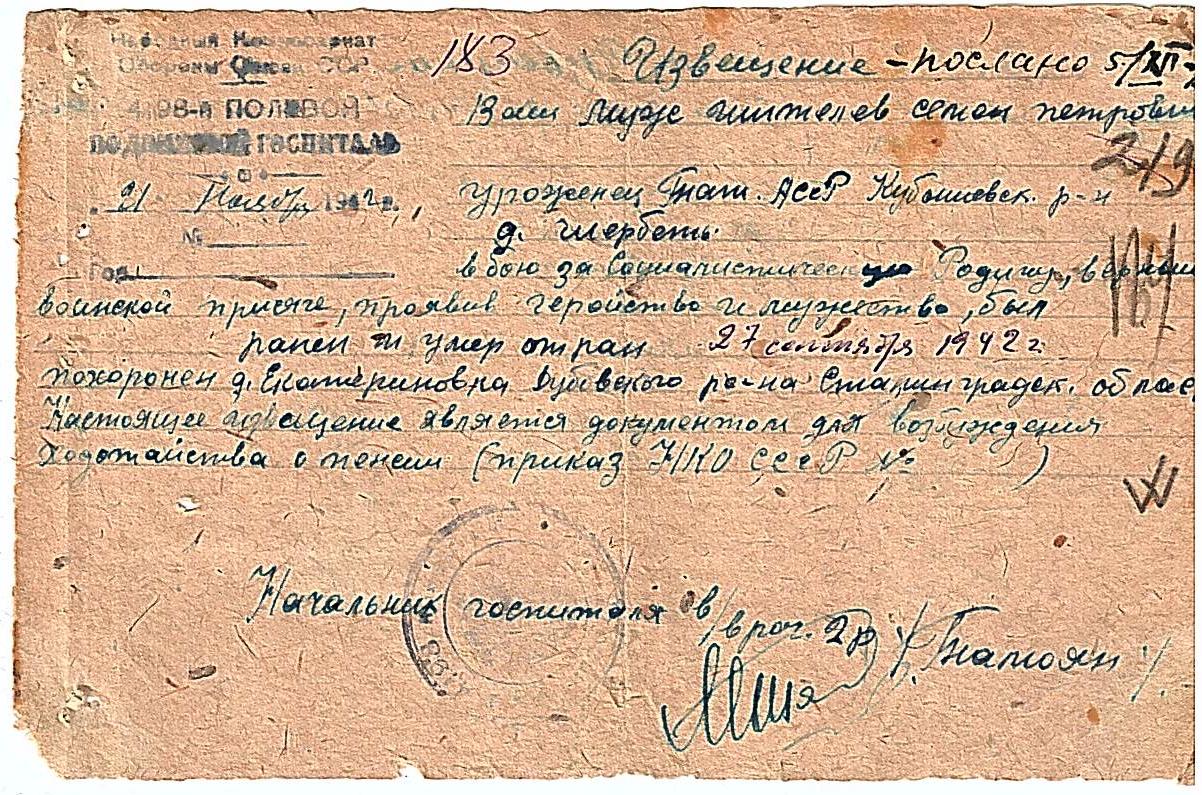 Народный Комиссариат
Обороны Союза ССР
183
Извещение - послано 5/XII-
4198-й ПОЛЕВОЙ
ПОДВИЖНОЙ ГОСПИТАЛЬ
Ваш муж Шителев Семен Петрович
219
21 Ноября 1942 г.,
уроженец Тат. АССР Куйбышевск. р-н
№
д. Щербеть
Год
в бою за Социалистическую Родину, верный
воинской присяге, проявив геройство и мужество, был
ранен и умер от ран 27 сентября 1942 г
похоронен д. Екатериновка Дубовского р-на Сталинградск. облас
Настоящее извещение является документом для возбуждения
ходотайства о пенсии (приказ НКО СССР № )
Начальник госпиталя в/врач. 2р /Тамоян/